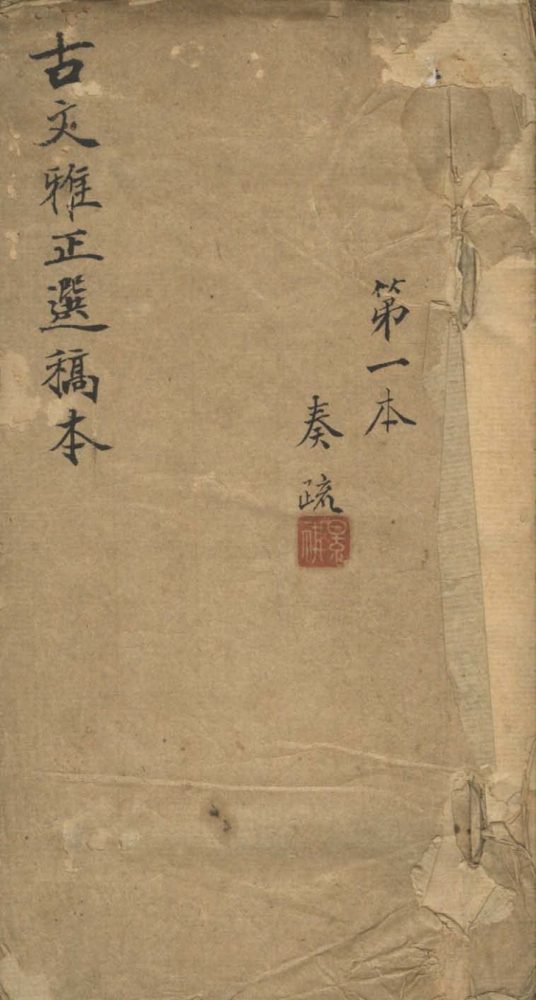 第一本
奏疏
古文雅正選稿本